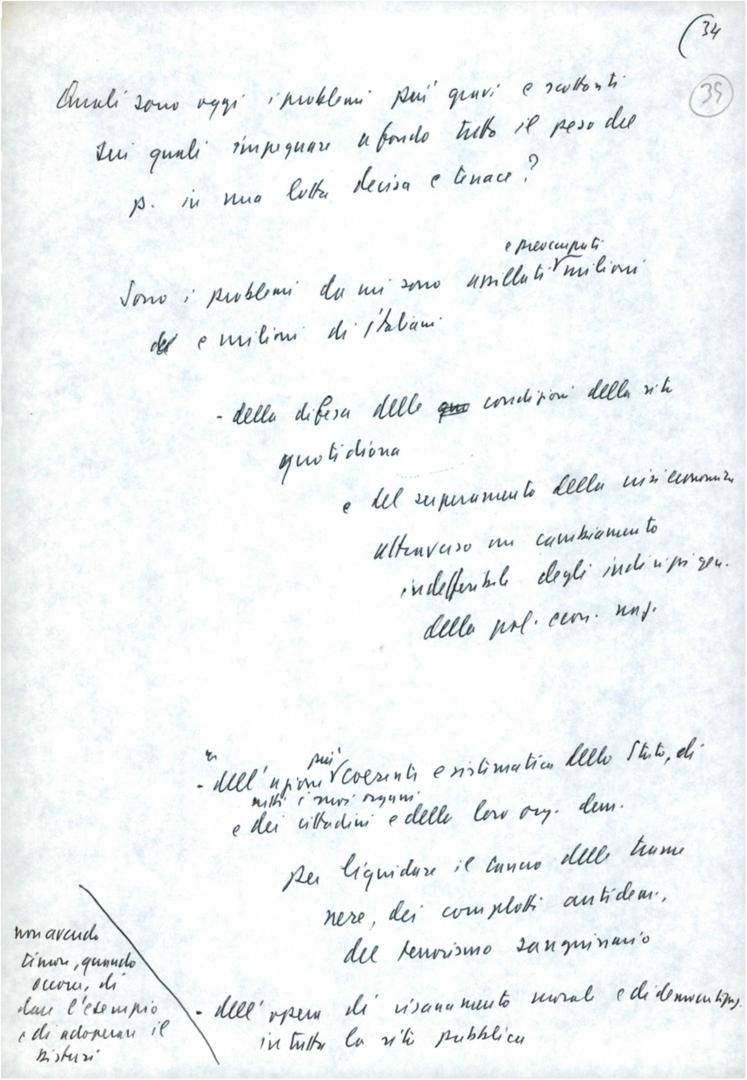 (34
39
Quali sono oggi i problemi più gravi e scottanti
sui quali impegnare a fondo tutto il peso del
p. in una lotta decisa e tenace?
e preoccupati
Sono i problemi da cui sono assillati milioni
e milioni di italiani
- della difesa delle condizioni della vita
quotidiana
e del superamento della crisi economica
attraverso un cambiamento
indefferibile degli indirizzi gen.
della pol. econ. naz.
più
- dell'azione coerente e sistematica dello Stato, di
tutti i suoi organi
e dei cittadini e della loro org. dem.
per liquidare il cancro delle trame
nere, dei complotti antidem.,
del terrorismo sanguinario
non avendo
timore, quando
occorre, di
dare l'esempio
e di adoperare il
bisturi
- dell'opera di risanamento morale e di democratizz.
in tutta la vita pubblica